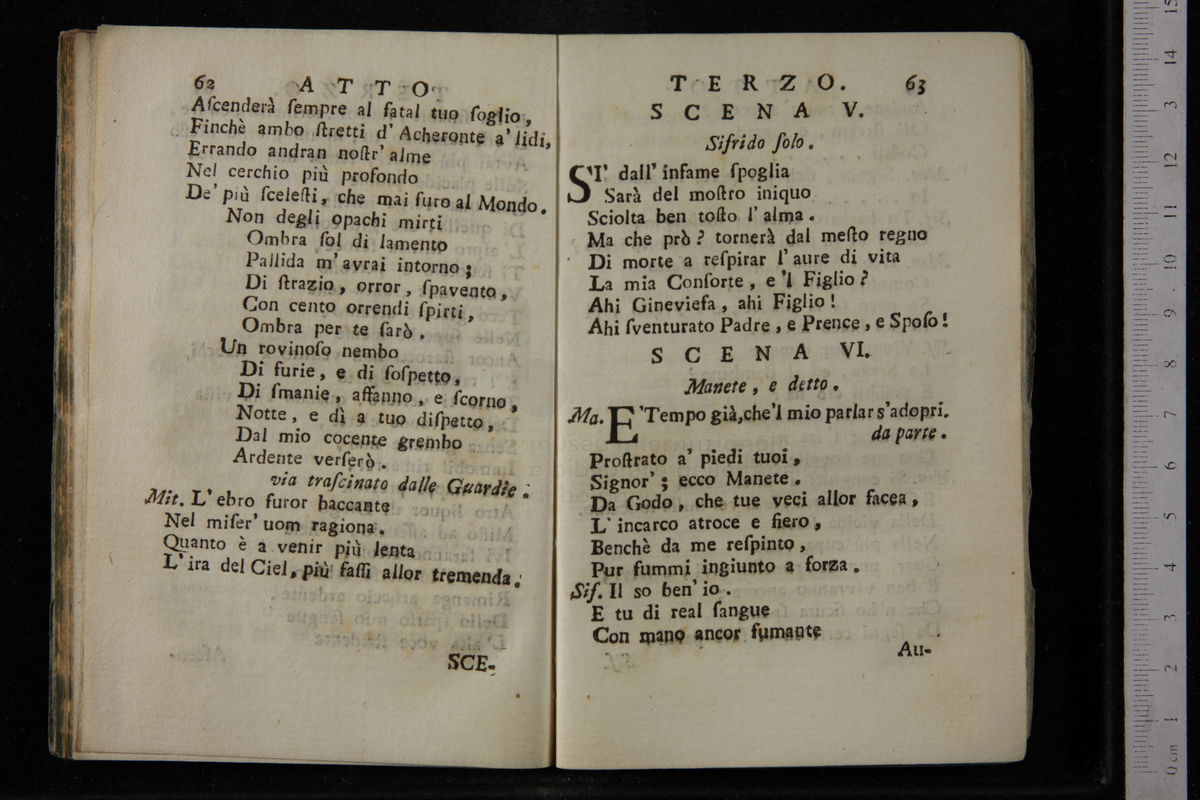 62 ATTO
Aſcenderà ſempre al fatal tuo ſoglio,
Finchè ambo ſtretti d' Acheronte a' lidi,
Errando andran noſtr' alme
Nel cerchio più profondo
De' più ſceleſti, che mai furo al Mondo.
Non degli opachi mirti
Ombra ſol di lamento
Pallida m' avrai intorno;
Di ſtrazio, orror, ſpavento,
Con cento orrendi ſpirti,
Ombra per te ſarò.
Un rovinoſo nembo
Di furie, e di ſoſpetto,
Di ſmanie, affanno, e ſcorno,
Notte, e dì a tuo diſpetto,
Dal mio cocente grembo
Ardente verſerò.
via traſcinato dalle Guardie.
Mit. L' ebro furor baccante
Nel miſer' uom ragiona.
Quanto è a venir più lenta
L' ira del Ciel, più faſſi allor tremenda.
SCE-
TERZO. 63
SCENA V.
Sifrido ſolo.
SI' dall' infame ſpoglia
Sarà del moſtro iniquo
Sciolta ben toſto l' alma.
Ma che prò? tornerà dal meſto regno
Di morte a reſpirar l' aure di vita
La mia Conſorte, e 'l Figlio?
Ahi Gineviefa, ahi Figlio!
Ahi ſventurato Padre, e Prence, e Spoſo!
SCENA VI.
Manete, e detto.
Ma. E' Tempo già, che 'l mio parlar s' adopri.
da parte.
Proſtrato a' piedi tuoi,
Signor'; ecco Manete.
Da Godo, che tue veci allor facea,
L' incarco atroce e fiero,
Benchè da me reſpinto,
Pur fummi ingiunto a forza.
Sif. Il so ben' io.
E tu di real ſangue
Con mano ancor fumante
Au-
0 cm 1 2 3 4 5 6 7 8 9 10 11 12 13 14 15